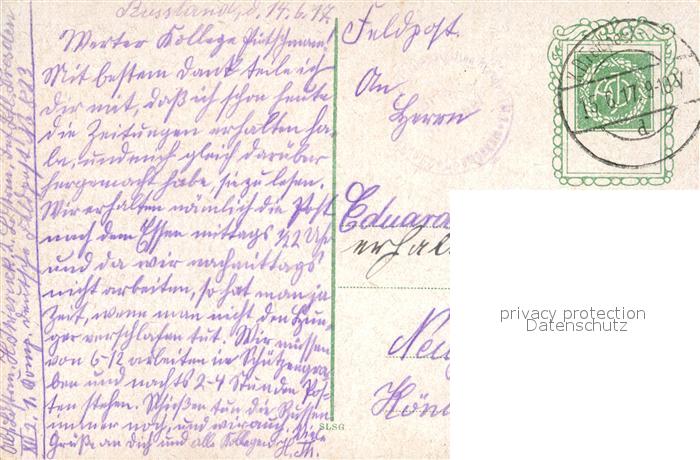 Russland, d. 14.6.17.
Werter Kollege Pütschman!
Mit bestem Dank teile ich
Dir mit, daß ich schon heute
die Zeitungen erhalten ha-
be, und mich gleich darüber
hergemacht habe, sie zu lesen.
Wir erhalten nämlich die Post
nach dem Essen mittags ½2 Uhr
und da wir nachmittags
nicht arbeiten, so hat man ja
Zeit, wenn man nicht den Hun-
ger verschlafen tut. Wir müssen
von 6-12 arbeiten in Schützengra-
ben und nachts 2-4 Stunden Pos-
ten stehen. Schießen tun die Russen
immer noch, und wir auch. Viele
Grüße an Dich und alle Kollegen H. Th.
XII. 2. 4. Komp. Deutsche Feldpost 823
Feldpost.
An
Herrn
Eduard
erhal
Neu
Kön
15.6.17.9-10V
d
SLSG
privacy protection
Datenschutz